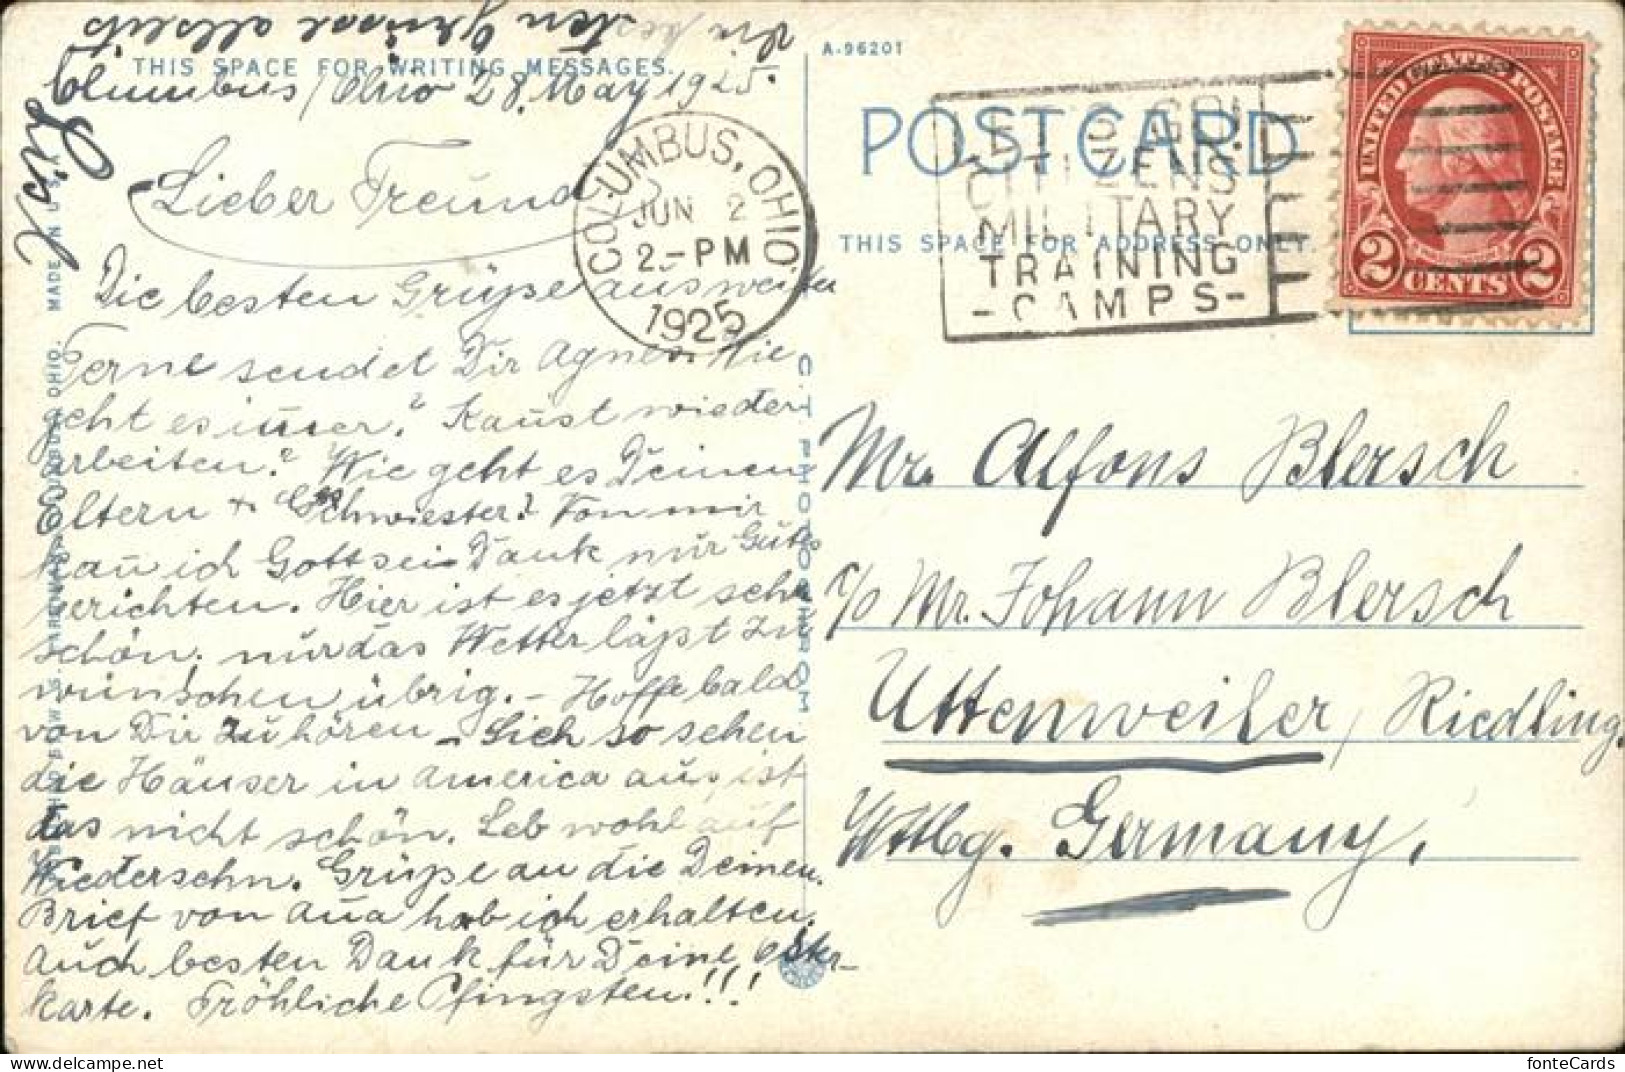 THIS SPACE FOR WRITING MESSAGES.
Columbus/Ohio 28. May 1925.
Lieber Freund
Die besten Grüße aus weiter
Ferne sendet Dir Agnes. Wie
geht es immer? Kaust wieder
arbeiten? Wie geht es Deinen
Eltern + Schwiester? Von mir
kau ich Gottsei Dank nur Gutes
berichten. Hier ist es jetzt sehr
schön. nur das Wetter läßt zu
wünschen übrig. – Hoffe bald
von Dir zu hören – Sich so sehen
die Häuser in America aus, ist
das nicht schön. Leb wohl auf
Wiedersehn. Grüße an die Deinen.
Brief von Aua hab ich erhalten.
Auch besten Dank für Deine Oster-
karte. Fröhliche Pfingsten!!!
die besten Grüsse allseits
MADE IN U.S.A.
C.T. PHOTOCHROM
A-96201
POST CARD
THIS SPACE FOR ADDRESS ONLY.
COLUMBUS, OHIO.
JUN 2
2-PM
1925
LET'S GO!
CITIZENS
MILITARY
TRAINING
-CAMPS-
UNITED STATES POSTAGE
2 CENTS 2
Mr. Alfons Blersch
c/o Mr. Johann Blersch
Uttenweiler, Riedling.
Wttbg. Germany,
fonteCards